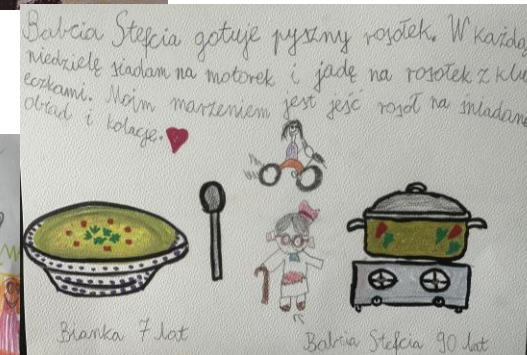 Babcia Stefcia gotuje pyszny rosołek. W każdą
niedzielę siadam na motorek i jadę na rosołek z klu
eczkami. Moim marzeniem jest jeść rosół na śniadanie
obiad i kolację.
Bianka 7 lat
Babcia Stefcia 90 lat